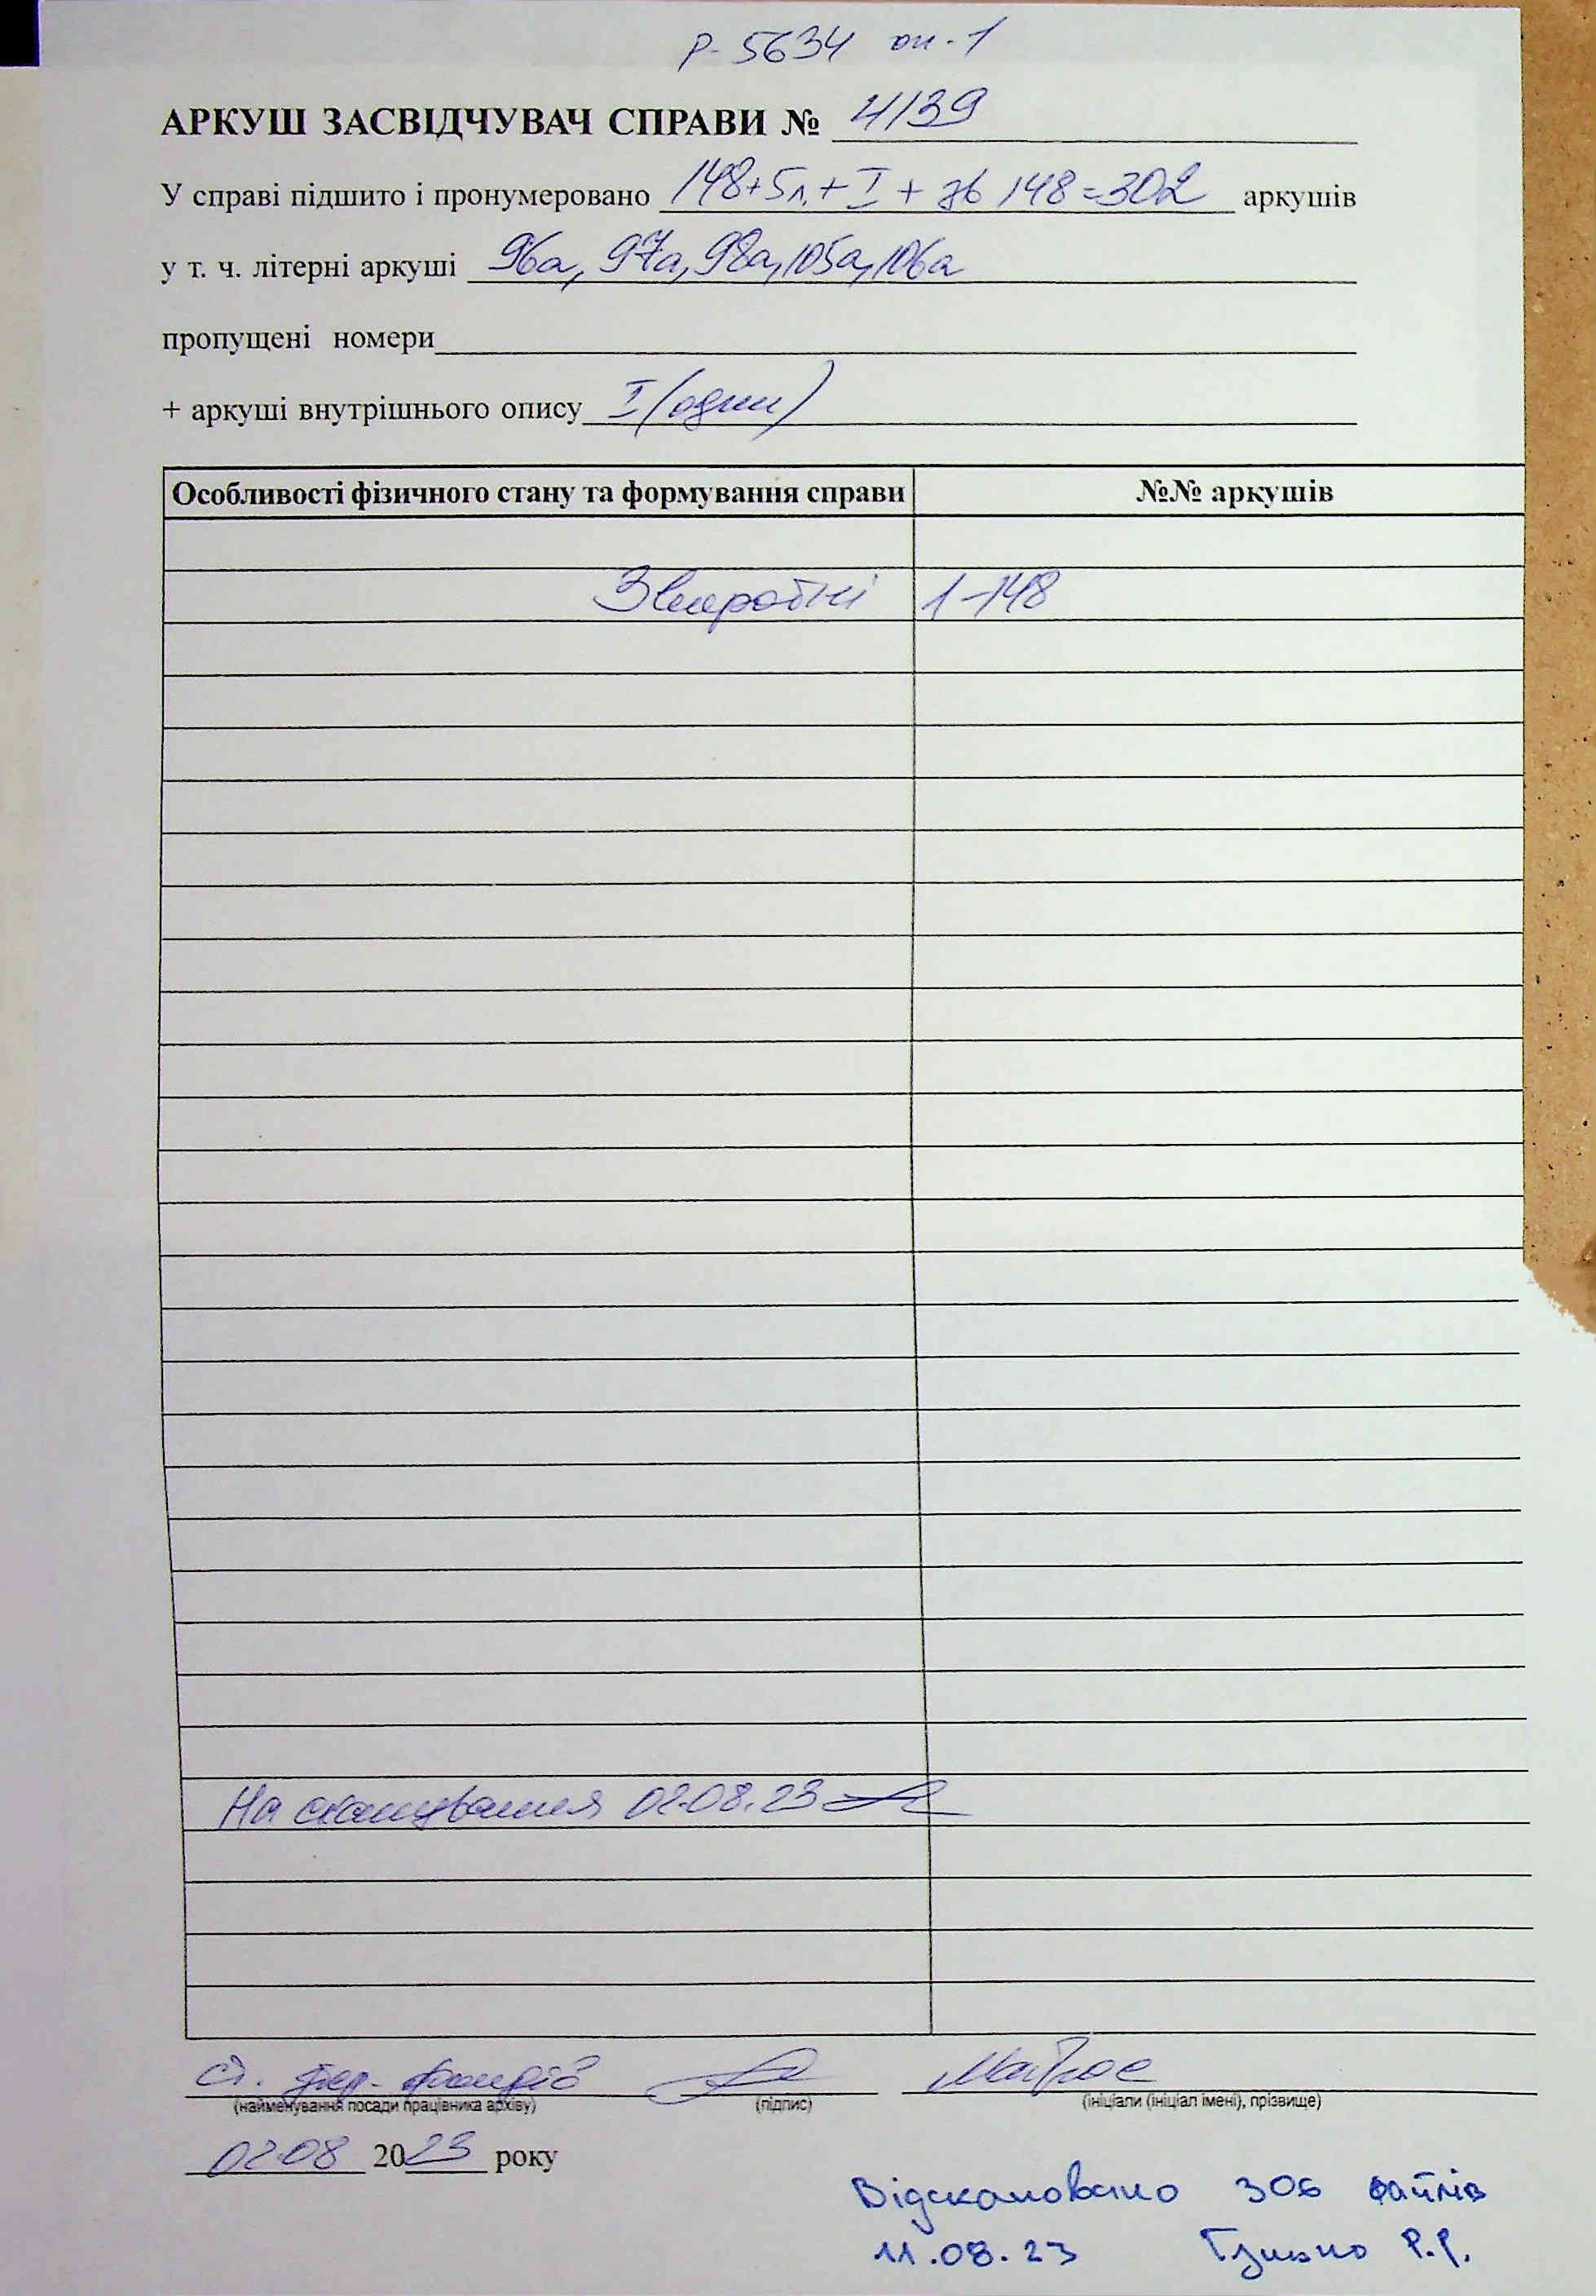 Р-5634 оп.1
АРКУШ ЗАСВІДЧУВАЧ СПРАВИ № 4139
У справі підшито і пронумеровано 148+5л.+I+зв 148=302 аркушів
у т. ч. літерні аркуші 96а, 97а, 98а, 105а, 106а
пропущені номери
+ аркуші внутрішнього опису I (один)
Особливості фізичного стану та формування справи №№ аркушів
Зворотні 1-148
На сканування 02.08.23
ст. фондів
(найменування посади працівника архіву) (підпис) (ініціали (ініціал імені), прізвище)
02.08 2023 року
Відскановано 306 файлів
11.08.23 Р.Р.